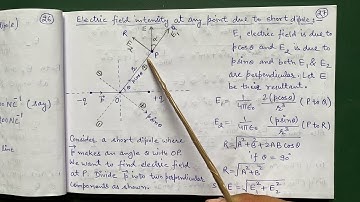 26
27
Electric field intensity at any point due to short dipole:
E₁ electric field is due to
pcosθ and E₂ is due to
psinθ and both E₁ & E₂
are perpendicular. Let E
be their resultant.
E₁ = 1/4πε₀ 2(pcosθ)/r³ (P to Q)
E₂ = 1/4πε₀ psinθ/r³ (P to R)
R = √A²+B²+2AB cosθ
if θ = 90°
R = √A²+B²
E = √E₁²+E₂²
R
E
E₁
P
r
θ
O
-q
psinθ
Consider a short dipole where
p makes an angle θ with OP.
We want to find electric field
at P. Divide p into two perpendicular
components as shown.
dipole)
NC⁻¹ (say)